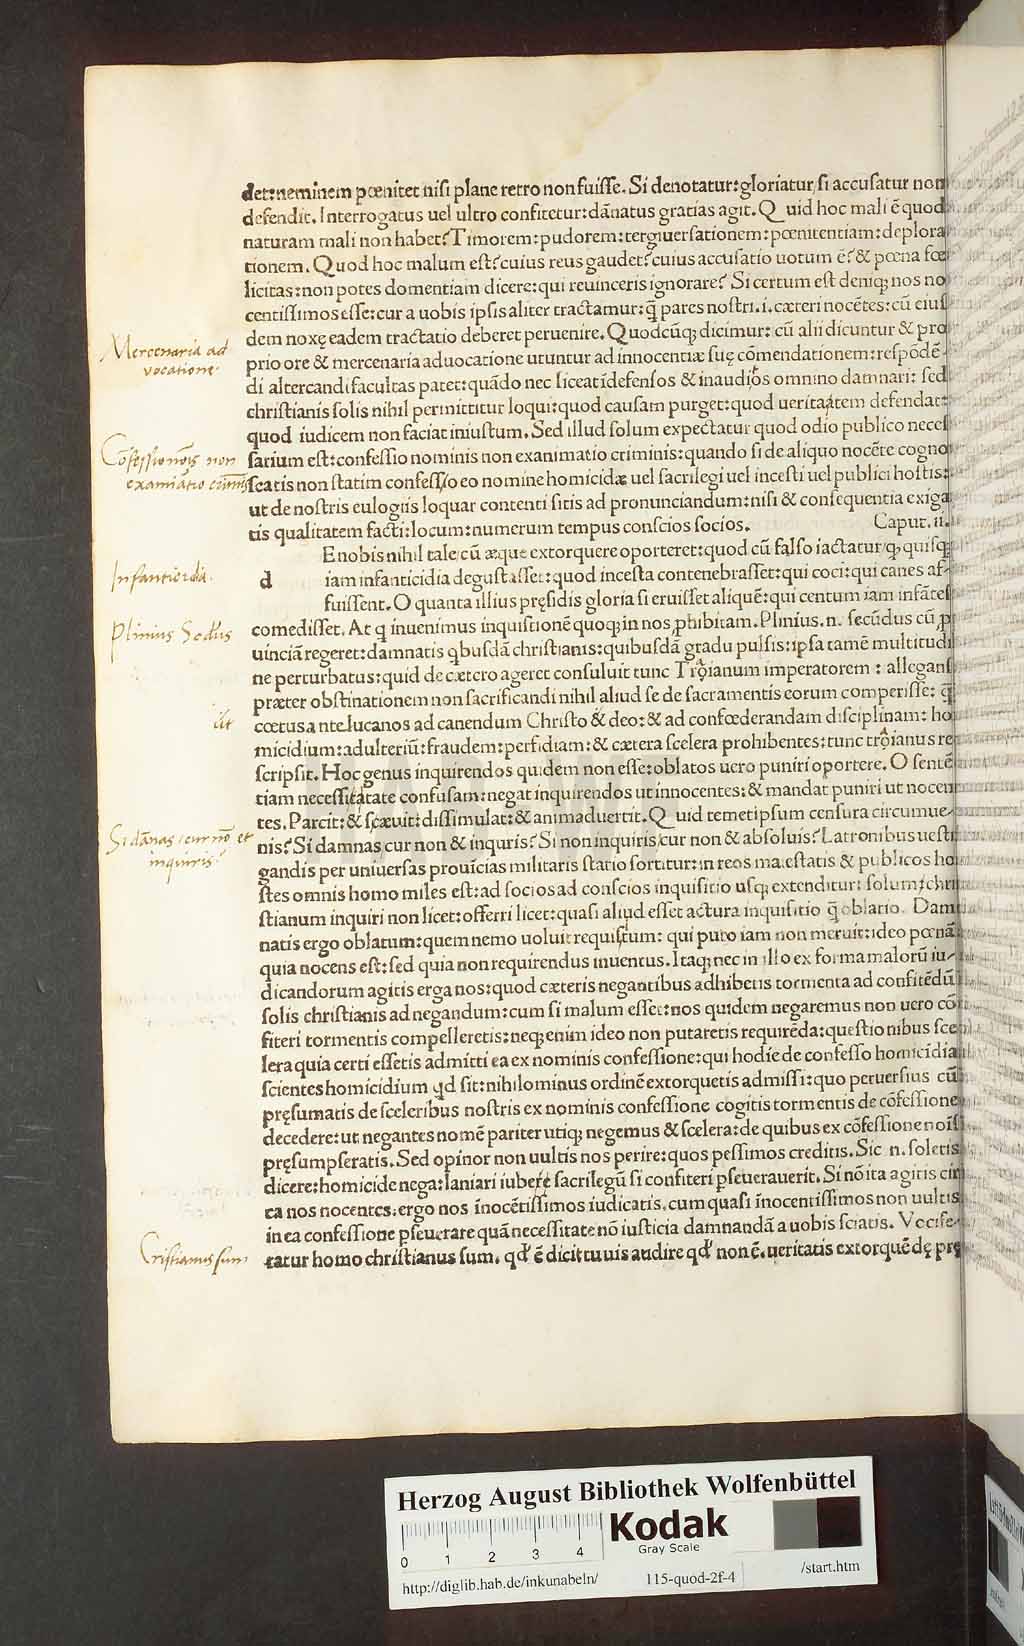 det:neminem pœnitet nisi plane retro non fuisse. Si denotatur:gloriatur/si accusatur non
defendit. Interrogatus uel ultro confitetur:dānatus gratias agit. Quid hoc mali ē quod
naturam mali non habet? Timorem:pudorem:tergiuersationem:pœnitentiam:deplora
tionem. Quod hoc malum est? cuius reus gaudet? cuius accusatio uotum ē? & pœna fœ
licitas:non potes domentiam dicere:qui reuinceris ignorare? Si certum est deniq; nos no
centissimos esse:cur a uobis ipsis aliter tractamur:q̄ pares nostri.i.cæteri nocētes:cū eius
dem noxę eadem tractatio deberet peruenire. Quodcūq; dicimur: cū alii dicuntur & pro
prio ore & mercenaria aduocatione utuntur ad innocentiæ suę cōmendationem:respōdē-
di altercandi facultas patet:quādo nec liceat īdefensos & inauditos omnino damnari: sed
christianis solis nihil permittitur loqui:quod causam purget:quod ueritaātem defendat:
quod iudicem non faciat iniustum. Sed illud solum expectatur quod odio publico neces
sarium est:confessio nominis non exanimatio criminis:quando si de aliquo nocēte cogno
scatis non statim confesso eo nomine homicidæ uel sacrilegi uel incesti uel publici hostis:
ut de nostris eulogiis loquar contenti sitis ad pronunciandum:nisi & consequentia exiga
tis qualitatem facti:locum:numerum tempus conscios socios. Caput.ii.
d E nobis nihil tale/cū æque extorquere oporteret:quod cū falso iactatur/q, quisq;
iam infanticidia degustasset:quod incesta contenebrasset:qui coci:qui canes af-
fuissent. O quanta illius pręsidis gloria si eruisset aliquē:qui centum iam infātes
comedisset. At q inuenimus inquisitionē quoq; in nos ꝓhibitam. Plinius.n. secūdus cū ꝓ
uinciā regeret:damnatis qbusdā christianis:quibusdā gradu pulsis:ipsa tamē multitudi
ne perturbatus:quid de cætero ageret consuluit tunc Troianum imperatorem: allegans
præter obstinationem non sacrificandi nihil aliud se de sacramentis eorum comperisse: q̄
cœtus antelucanos ad canendum Christo & deo:& ad confœderandam disciplinam: ho
micidium:adulteriū:fraudem:perfidiam:& cætera scelera prohibentes:tunc troianus re
scripsit. Hoc genus inquirendos quidem non esse:oblatos uero puniri oportere. O sentē
tiam necessitatate confusam:negat inquirendos ut innocentes:& mandat puniri ut nocen
tes. Parcit:& scæuit:dissimulat:& animaduertit. Quid temetipsum censura circumue-
nis? Si damnas cur non & inquris? Si non inquiris/cur non & absoluis? Latronibus uesti
gandis per uniuersas prouīcias militaris statio sortitur:in reos maiestatis & publicos ho
stes omnis homo miles est:ad socios ad conscios inquisitio usq; extenditur: solum/chri
stianum inquiri non licet:offerri licet:quasi aliud esset actura inquisitio q̄ oblatio. Dam
natis ergo oblatum:quem nemo uoluit requistum: qui puto iam non meruit:ideo pœnā
quia nocens est:sed quia non requirendus inuentus. Itaq; nec in illo ex forma malorū iu-
dicandorum agitis erga nos:quod cæteris negantibus adhibetis tormenta ad confitēdū
solis christianis ad negandum:cum si malum esset:nos quidem negaremus non uero cō
fiteri tormentis compelleretis:neq; enim ideo non putaretis requirēda:questionibus sce
lera quia certi essetis admitti ea ex nominis confessione:qui hodie de confesso homicidia
scientes homicidium qd sit:nihilominus ordinē extorquetis admissi:quo peruersius cū
pręsumatis de sceleribus nostris ex nominis confessione cogitis tormentis de cōfessione
decedere:ut negantes nomē pariter utiq; negemus & scelera:de quibus ex cōfessione noīs
pręsumpseratis. Sed opinor non uultis nos perire:quos pessimos creditis. Sic .n. soletis
dicere:homicide nega:laniari iubete sacrilegū si confiteri ꝑseuerauerit. Si nō ita agitis cir
ca nos nocentes:ergo nos īnocētissimos iudicatis.cum quasi īnocentissimos non uultis
in ea confessione ꝑseuerare quā necessitate nō iusticia damnandā a uobis sciatis. Vocife-
ratur homo christianus sum. qd ē dicit tu uis audire qd non ē. ueritatis extorquēdę prę
Mercenaria ad
vocatione.
Cōfessionis non
examinatio
Infanticidia.
Plinius Secdus
ut
Si dānas/cur nō et
inquiris?
Cristianus sum
Herzog August Bibliothek Wolfenbüttel
0 1 2 3 4
Kodak
Gray Scale
http://diglib.hab.de/inkunabeln/ 115-quod-2f-4 /start.htm